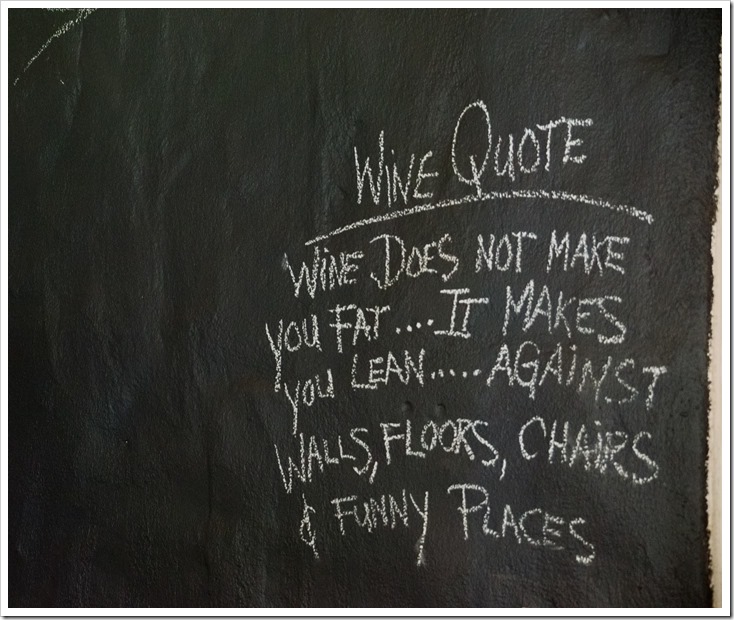 Wine Quote
Wine Does not make
you Fat....It makes
you lean.....Against
Walls, Floors, Chairs
& Funny Places